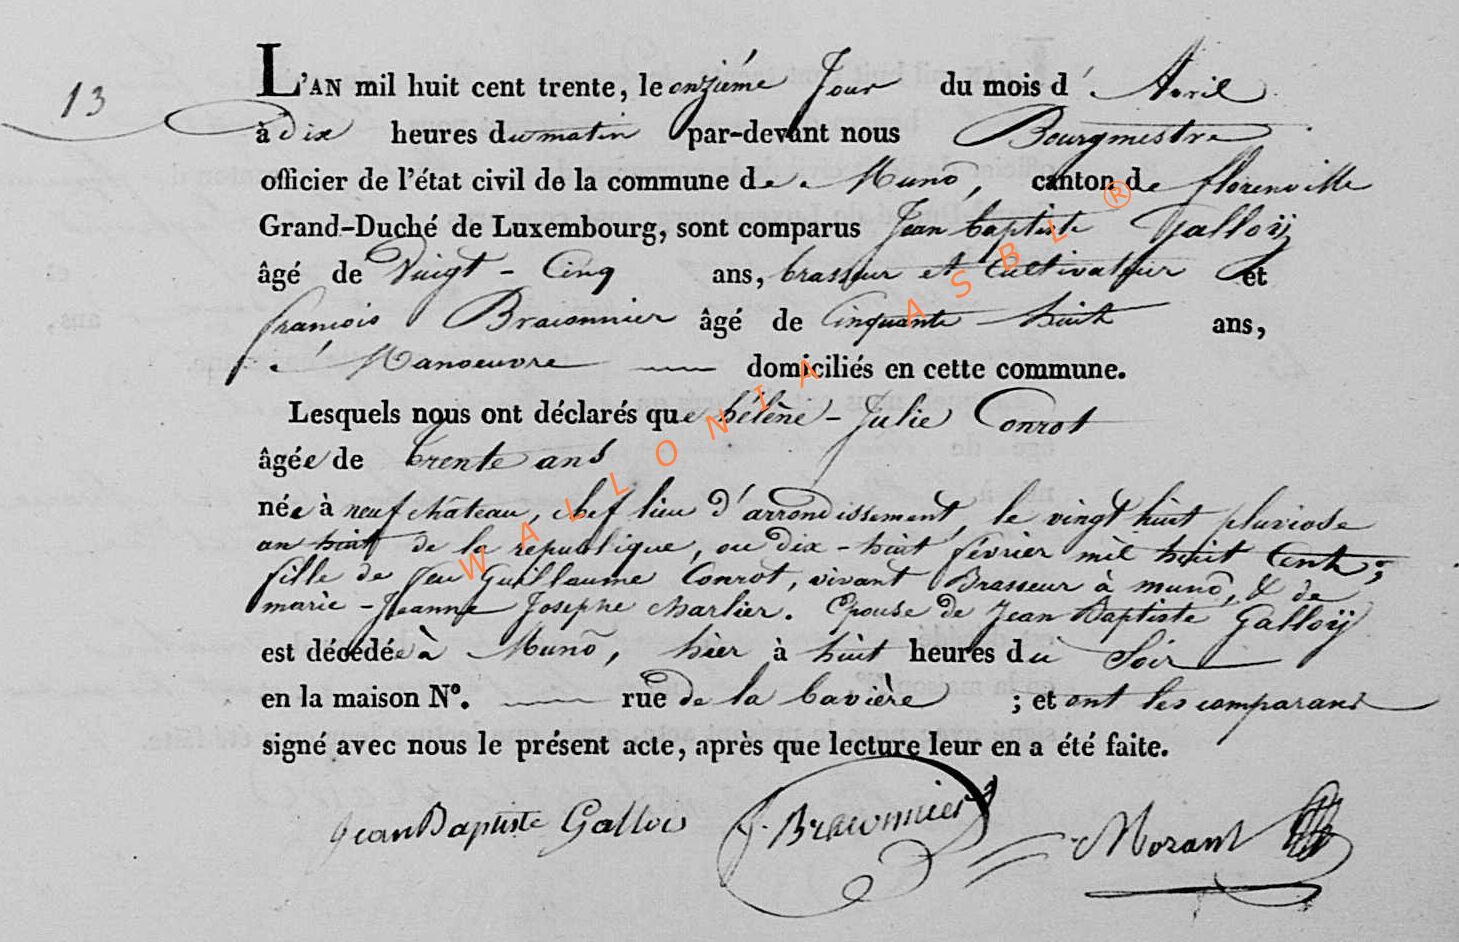 13
L'AN mil huit cent trente, le onzième Jour du mois d' Avril
à dix heures du matin par-devant nous Bourgmestre
officier de l'état civil de la commune de Muno, canton de florenville
Grand-Duché de Luxembourg, sont comparus Jean baptiste Galloÿ
âgé de Vingt - Cinq ans, brasseur et Cultivateur et
françois Braconnier âgé de Cinquante huit ans,
Manoeuvre domiciliés en cette commune.
Lesquels nous ont déclarés que hélène - Julie Conrot
âgée de trente ans
née à neufchâteau, chef lieu d'arrondissement, le vingt huit pluviose
an huit de la république, ou dix - huit février mil huit Cent,
fille de feu Guillaume Conrot, vivant Brasseur à muno, & de
marie - Jeanne Josephe charlier. Epouse de Jean Baptiste Galloÿ
est décédée à Muno, hier à huit heures du Soir
en la maison N°. rue de la bavière ; et ont les comparans
signé avec nous le présent acte, après que lecture leur en a été faite.
Jean Baptiste Gallois J. Braconnier Morant
WALLONIA ASBL ®